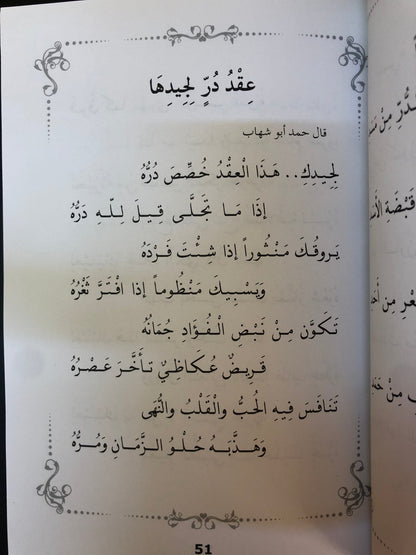 عِقْدُ دُرٍّ لِجِيدِهَا
قال حمد أبو شهاب
لِجِيدِكِ.. هَذَا الْعِقْدُ خُصِّصَ دُرُّهُ
إذَا مَا تَجَلَّى قِيلَ لِلّهِ دَرُّهُ
يَروقُكَ مَنْثُوراً إذا شِئْتَ فَرْدَهُ
وَيَسْبِيكَ مَنْظُوماً إذا افْتَرَّ ثَغْرُهُ
تَكَوَّن مِنْ نَبْضِ الْفُؤَادِ جُمَانُهُ
قَرِيضٌ عُكَاظِيٌ تـأخَّرَ عَصْـرُهُ
تَنَافَسَ فِيهِ الحُبُّ والْقَلْبُ والنُّهَى
وَهَذَّبَـهُ حُلْـوُ الـزَّمَـانِ وَمُـرُّهُ
51